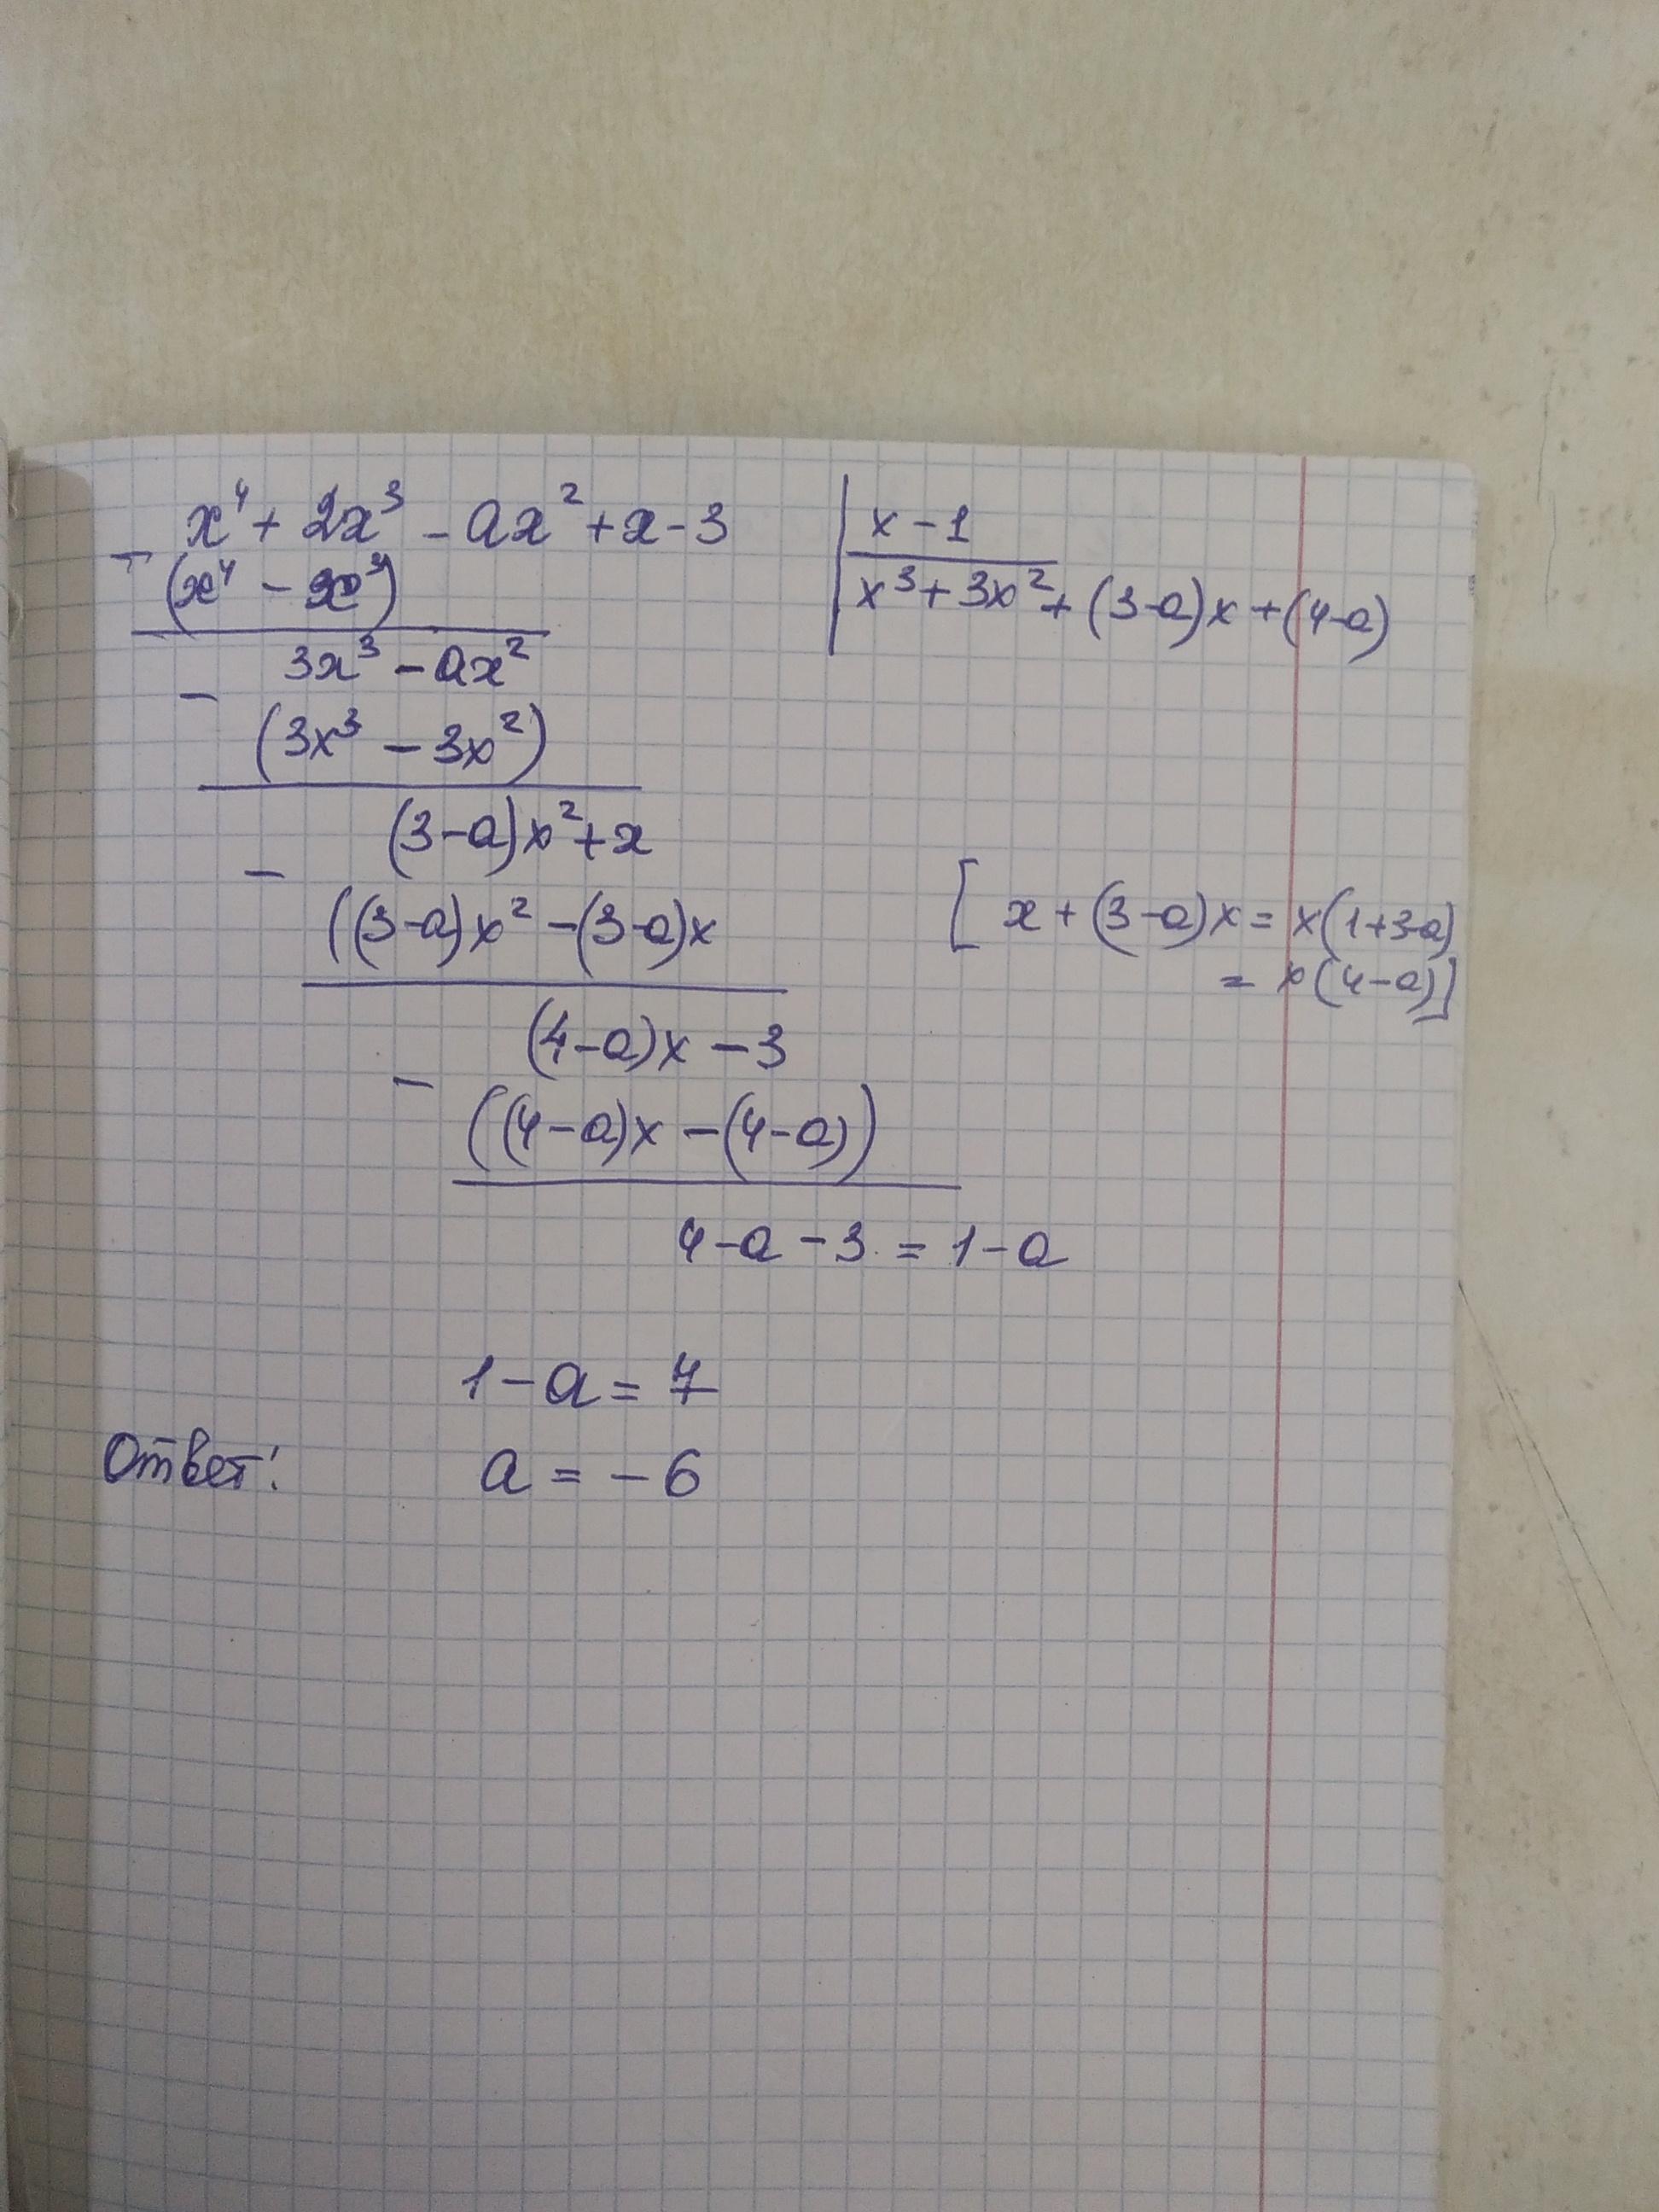 x⁴ + 2x³ - ax² + x - 3 | x - 1
- (x⁴ - x³) | x³ + 3x² + (3-a)x + (4-a)
3x³ - ax²
- (3x³ - 3x²)
(3-a)x² + x
- ((3-a)x² - (3-a)x
[ x + (3-a)x = x(1+3-a)
= x(4-a)]
(4-a)x - 3
- ((4-a)x - (4-a))
4-a-3 = 1-a
1-a = 7
Ответ: a = -6